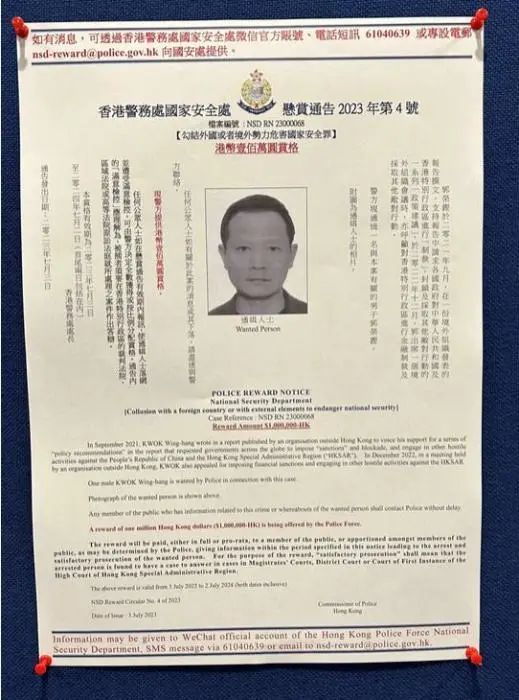 如有消息，可透過香港警務處國家安全處微信官方賬號、電話短訊 61040639 或專設電郵
nsd-reward@police.gov.hk 向國安處提供。
香港警務處國家安全處 懸賞通告 2023 年第 4 號
檔案編號 : NSD RN 23000068
【勾結外國或者境外勢力危害國家安全罪】
港幣壹佰萬圓賞格
郭榮鏗於二零二一年九月，在一份境外組織發表的
報告撰文，支持報告中請求各國政府對中華人民共和國及
香港特別行政區進行「制裁」、封鎖及採取其他敵對行動的
一系列「政策建議」。於二零二二年十二月，郭出席一個境
外組織會議時，亦呼籲對香港特別行政區進行金融制裁及
採取其他敵對行動。
警方現通緝一名與本案有關的男子郭榮鏗。
附圖為通緝人士的相片。
任何公眾人士如有關於此案的消息或其下落，請
方聯絡。
現警方提供港幣壹佰萬圓賞格。
任何公眾人士如在懸賞通告有效期內報訊，使通緝人士落網
並遭受滿意檢控，可由警方決定全數獲得或按比例分配賞格。通告內
的「滿意檢控」應理解為，被捕者須要在香港特別行政區的裁判法院、
區域法院或高等法院原訟法庭就所處理之案件作出答辯。
本賞格有效期為二零二三年七月三日
至二零二四年七月二日（首尾兩日包括在內）
香港警務處處長
通告發出日期：二零二三年七月三日
通緝人士
Wanted Person
POLICE REWARD NOTICE
National Security Department
[Collusion with a foreign country or with external elements to endanger national security]
Case Reference : NSD RN 23000068
Reward Amount $1,000,000-HK
In September 2021, KWOK Wing-hang wrote in a report published by an organisation outside Hong Kong to voice his support for a series of
"policy recommendations" in the report that requested governments across the globe to impose "sanctions" and blockade, and engage in other hostile
activities against the People's Republic of China and the Hong Kong Special Administrative Region ("HKSAR"). In December 2022, in a meeting held
by an organisation outside Hong Kong, KWOK also appealed for imposing financial sanctions and engaging in other hostile activities against the HKSAR.
One male KWOK Wing-hang is wanted by Police in connection with this case.
Photograph of the wanted person is shown above.
Any member of the public who has information related to this crime or whereabouts of the wanted person shall contact Police without delay.
A reward of one million Hong Kong dollars ($1,000,000-HK) is being offered by the Police Force.
The reward will be paid, either in full or pro-rata, to a member of the public, or apportioned amongst members of the
public, as may be determined by the Police, giving information within the period specified in this notice leading to the arrest and
satisfactory prosecution of the wanted person. For the purpose of the reward, "satisfactory prosecution" shall mean that the
arrested person is found to have a case to answer in cases in Magistrates' Courts, District Court or Court of First Instance of the
High Court of Hong Kong Special Administrative Region.
The above reward is valid from 3 July 2023 to 2 July 2024 (both dates inclusive)
NSD Reward Circular No. 4 of 2023
Commissioner of Police
Hong Kong
Date of Issue : 3 July 2023
Information may be given to WeChat official account of the Hong Kong Police Force National
Security Department, SMS message via 61040639 or email to nsd-reward@police.gov.hk.